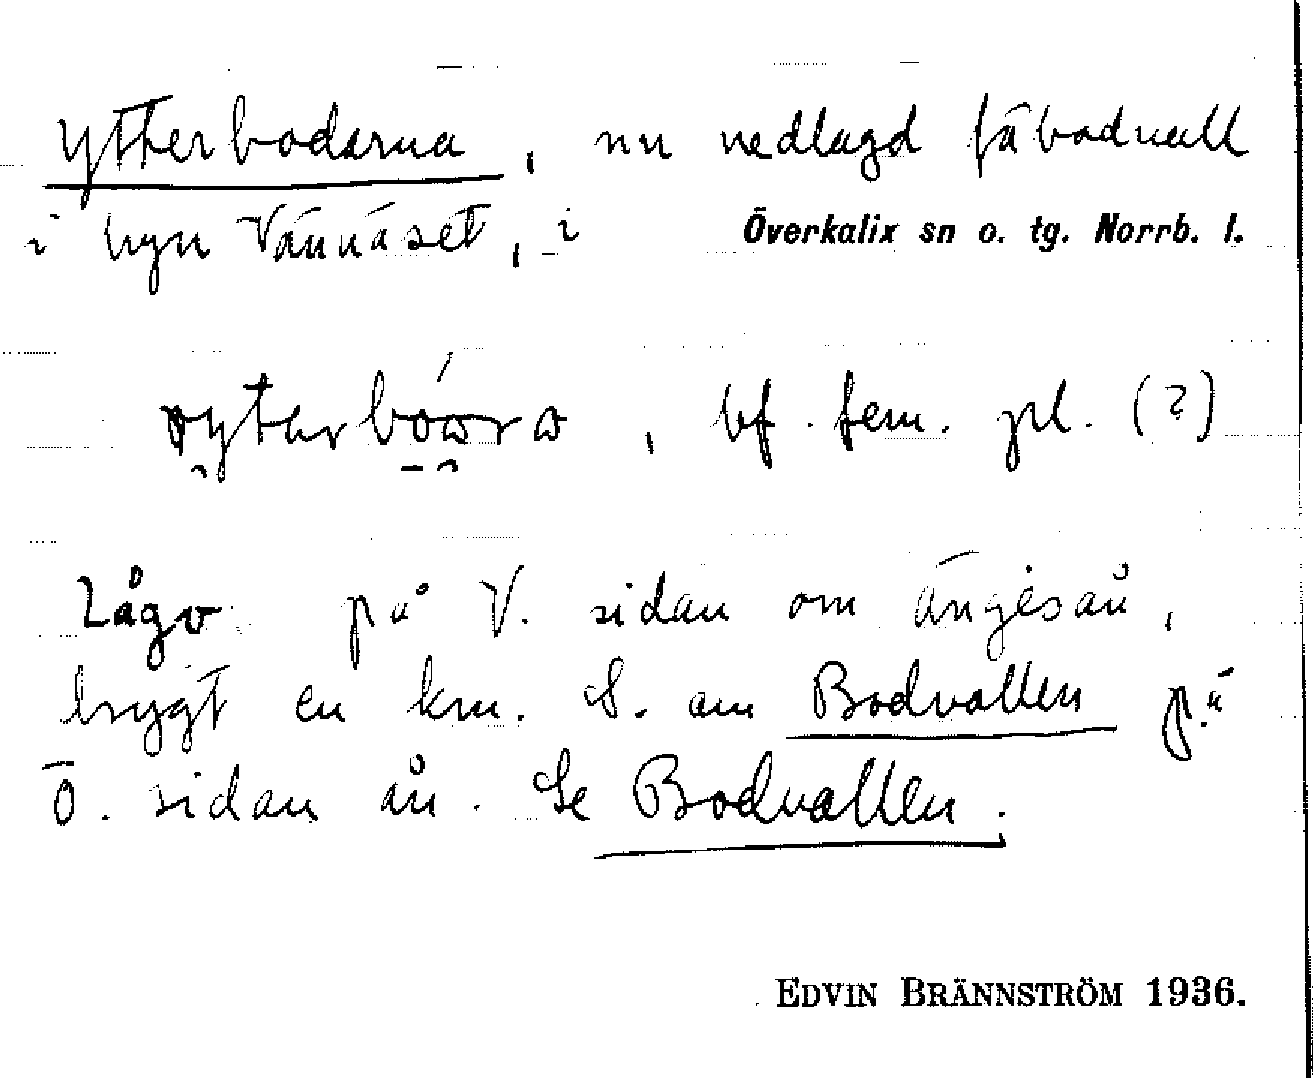 Ytterboderna, nu nedlagd fäbodvall
i byn Vännäset, i Överkalix sn o. tg. Norrb. l.
, bf. fem. pl. (?)
Lågo på V. sidan om Ängesån,
bygt en km. S. om Bodvallen på
Ö. sidan ån. Se Bodvallen.
EDVIN BRÄNNSTRÖM 1936.